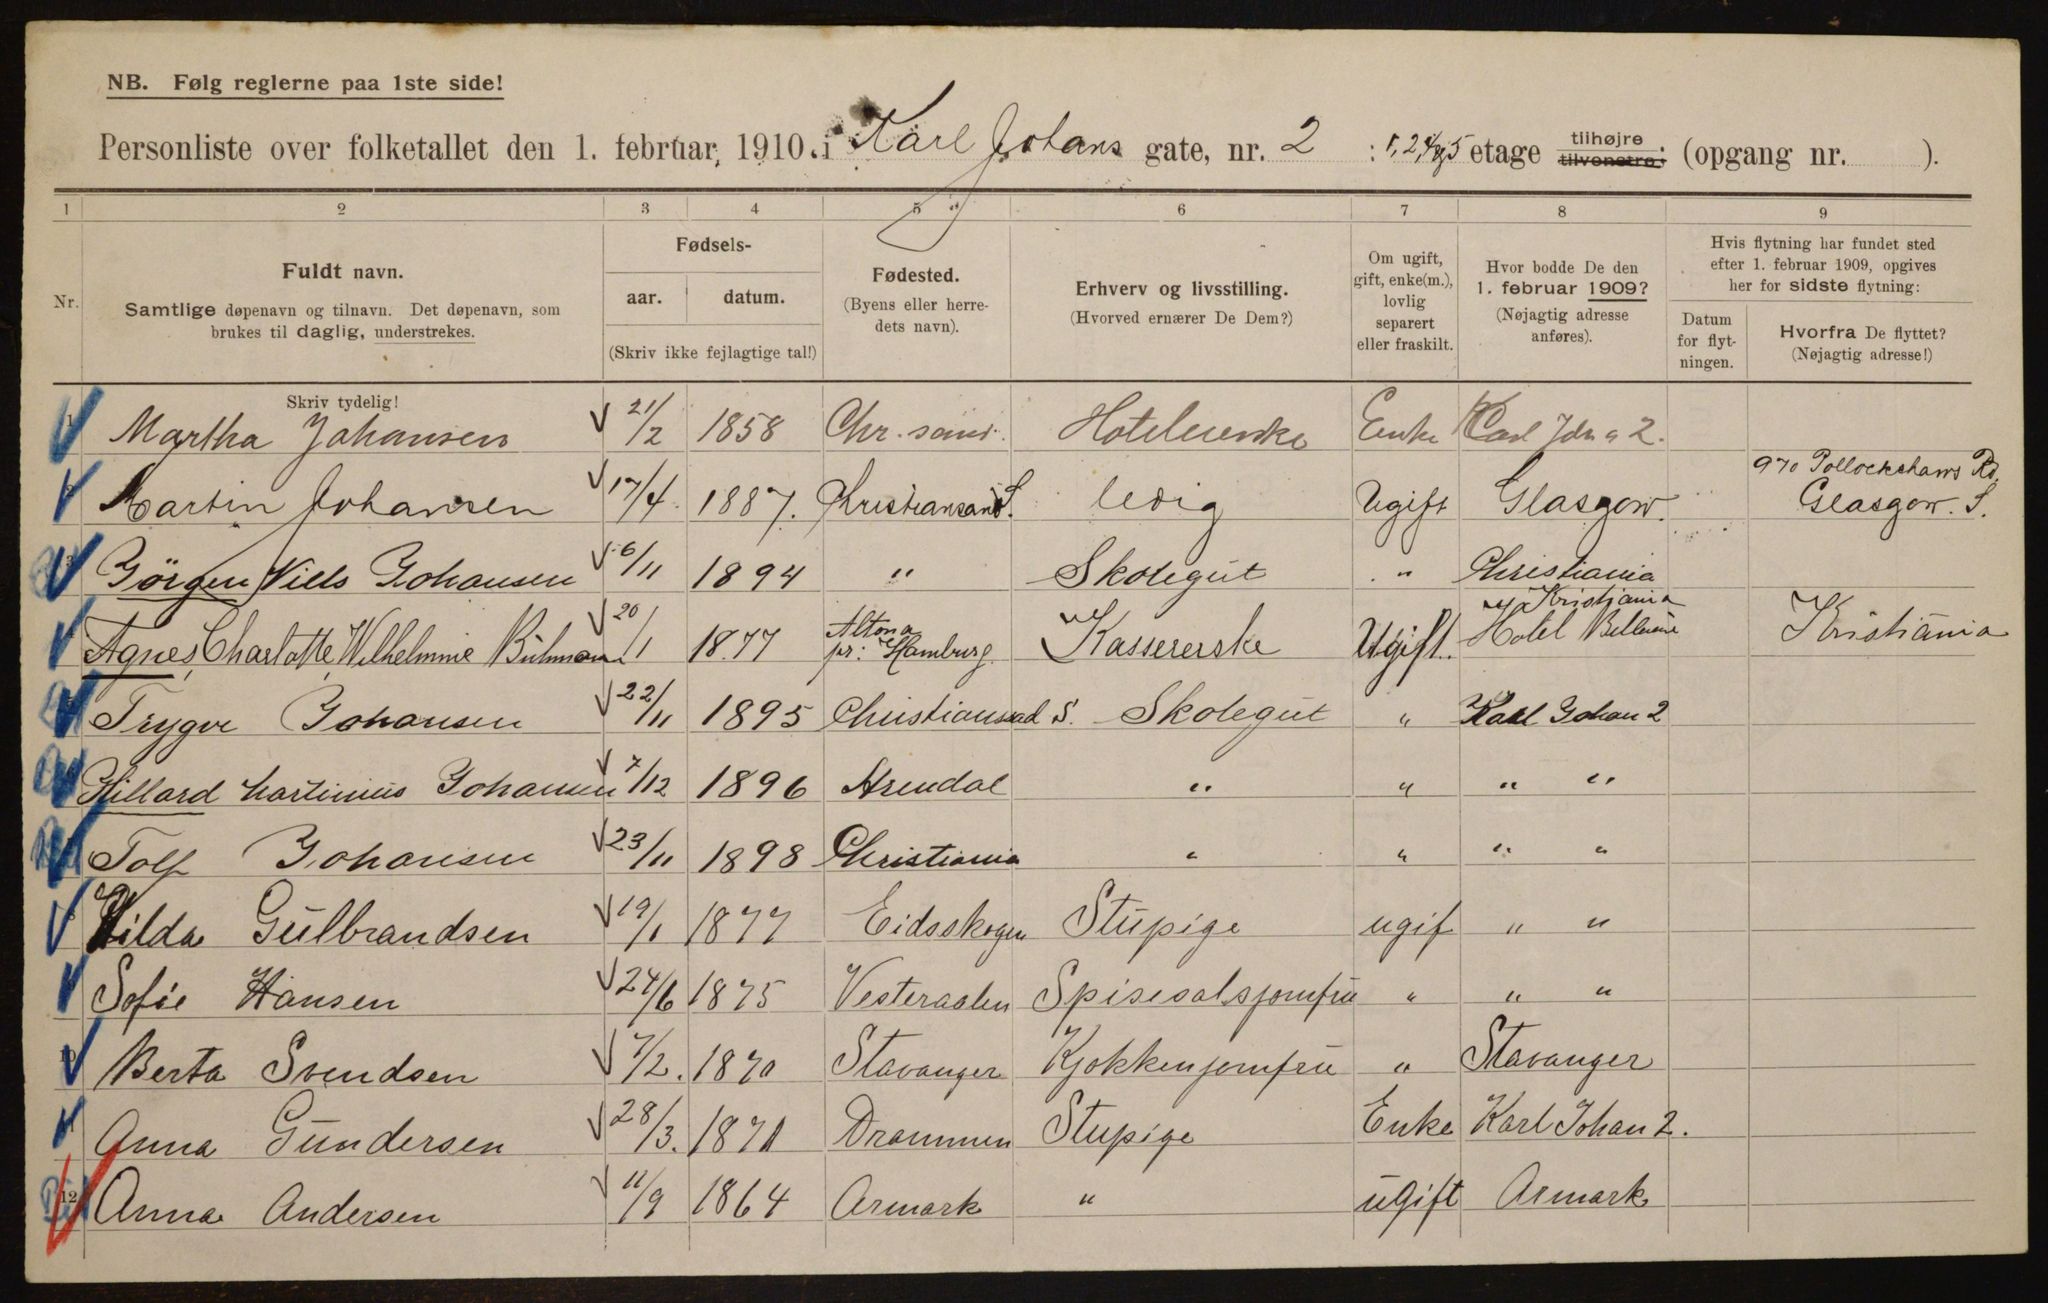 NB. Følg reglerne paa 1ste side!
Personliste over folketallet den 1. februar 1910 i Karl Johans gate, nr. 2 : 1, 2, 4 og 5 etage tilhøjre tilvenstre: (opgang nr. ).
1 2 3 4 5 6 7 8 9
Nr.
Fuldt navn.
Samtlige døpenavn og tilnavn. Det døpenavn, som
brukes til daglig, understrekes.
Fødsels-
aar. datum.
(Skriv ikke fejlagtige tal!)
Fødested.
(Byens eller herre-
dets navn).
Erhverv og livsstilling.
(Hvorved ernærer De Dem?)
Om ugift,
gift, enke(m.),
lovlig
separert
eller fraskilt.
Hvor bodde De den
1. februar 1909?
(Nøjagtig adresse
anføres).
Hvis flytning har fundet sted
efter 1. februar 1909, opgives
her for sidste flytning:
Datum
for flyt-
ningen.
Hvorfra De flyttet?
(Nøjagtig adresse!)
Skriv tydelig!
1 Martha Johansen 21/2 1858 Chr.sand. Enke Karl 2.
2 Martin Johansen 17/4 1887. Kristiansand S. ledig Ugift Glasgow. 970 Pollockshaws Rd. Glasgow. S.
3 Görgen Niels Johansen 6/11 1894 " Skolegut " Christiania
Agnes Charlotte Wilhelmine 20/1 1877 Altona pr: Hamburg Kassererske Ugift. Kristiania Hotel Bellevue Kristiania
Trygve Johansen 22/11 1895 Christianssad S. Skolegut " Karl Johan 2
Johansen 7/12 1896 Arendal " " " "
Johansen 23/11 1898 Christiania " " " "
Hilda Gulbrandsen 19/1 1877 Eidsskogen Stupige ugif " "
Sofie Hansen 24/6 1875 Vesteraalen Spisesalsjomfru " " "
10 Berta Svendsen 7/2. 1870 Stavanger Kjøkkenjomfru " Stavanger
11 Anna Gundersen 28/3. 1871 Drammen Stupige Enke Karl Johan 2.
12 Anna Andersen 11/9 1864 Armark " ugift Armark